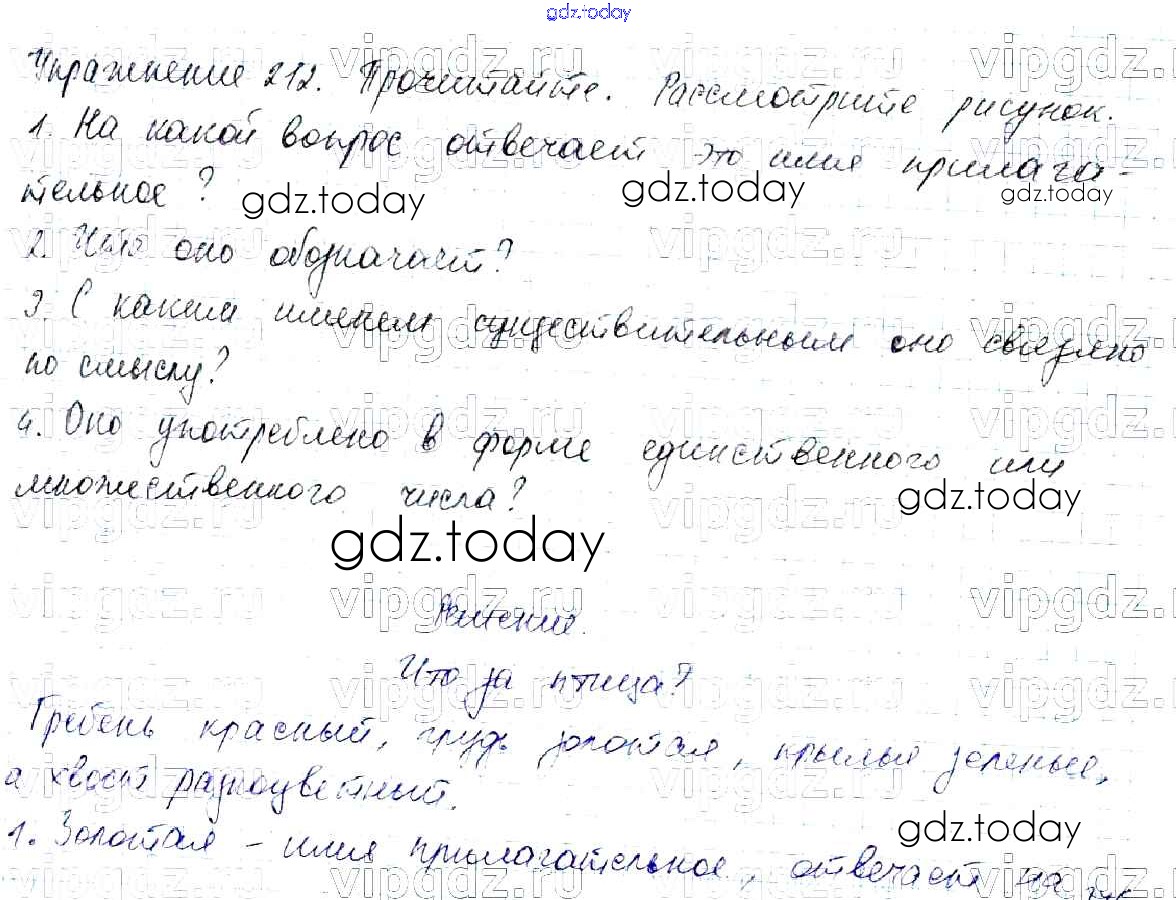 gdz.today
Упражнение 212. Прочитайте. Рассмотрите рисунок.
1. На какой вопрос отвечает это имя прилага-
тельное?
gdz.today
gdz.today
gdz.today
2. Что оно обозначает?
3. С каким именем существительным оно связано
по смыслу?
4. Оно употреблено в форме единственного или
множественного числа?
gdz.today
gdz.today
Решение.
Что за птица?
Гребень красный, грудь золотая, крылья зеленые,
а хвост разноцветный.
gdz.today
1. Золотая - имя прилагательное, отвечает на
vipgdz.ru